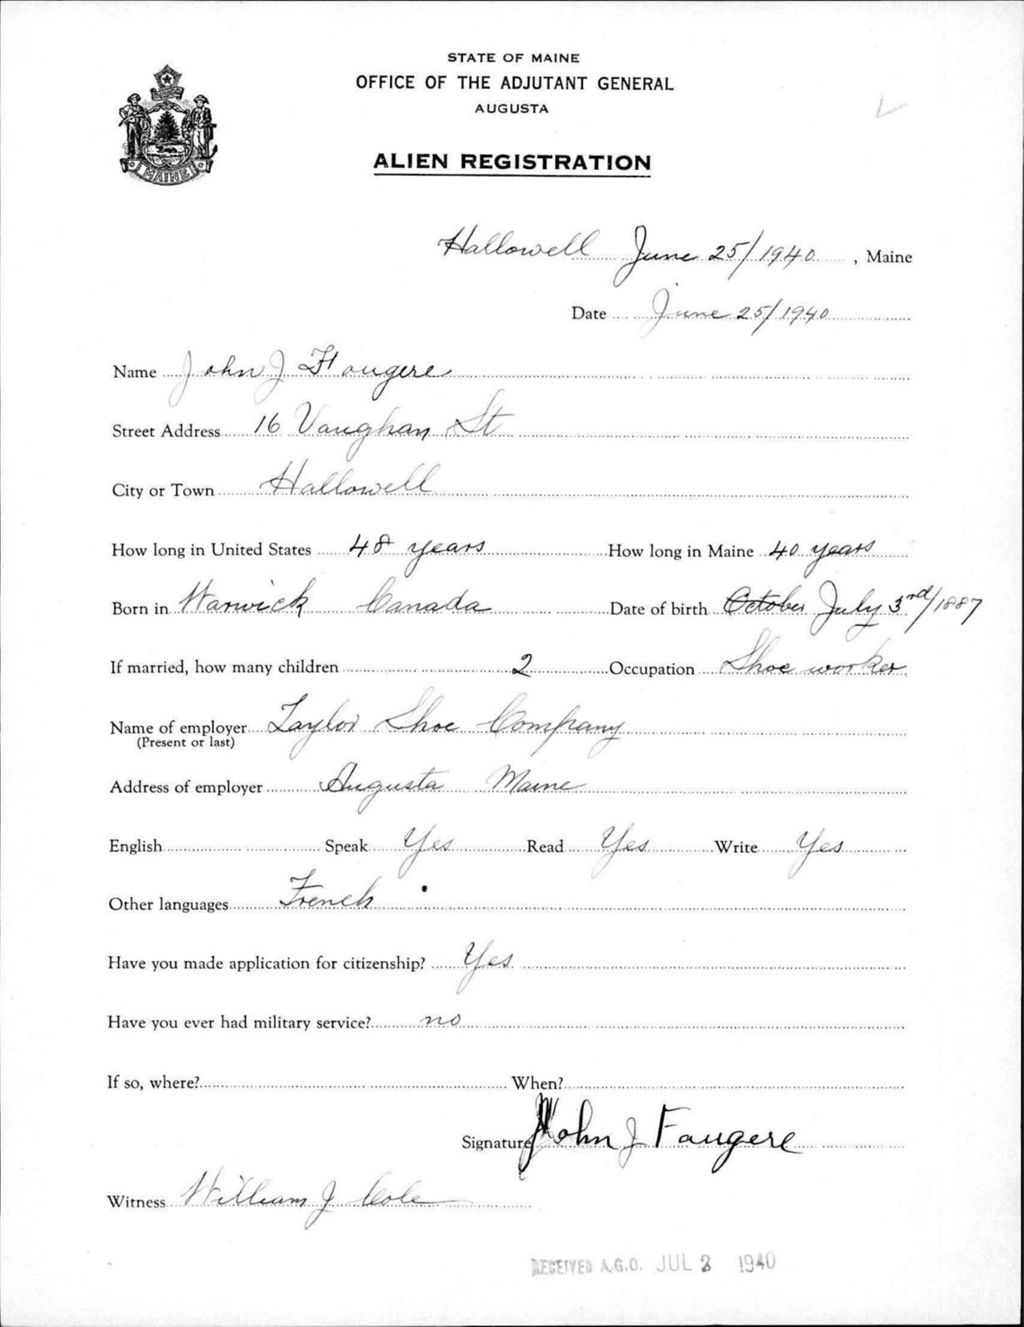 STATE OF MAINE
OFFICE OF THE ADJUTANT GENERAL
AUGUSTA
MAINE
ALIEN REGISTRATION
Hallowell June 25/1940, Maine
Date June 25/1940
Name John J Fougere
Street Address 16 Vaughan St
City or Town Hallowell
How long in United States 48 years How long in Maine 40 years
Born in Warwick Canada Date of birth October July 3rd/1887
If married, how many children 2 Occupation Shoe worker
Name of employer Taylor Shoe Company
(Present or last)
Address of employer Augusta Maine
English Speak Yes Read Yes Write Yes
Other languages French
Have you made application for citizenship? Yes
Have you ever had military service? no
If so, where? When?
Signature John J Faugere
Witness William J Cole
RECEIVED A.G.O. JUL 2 1940